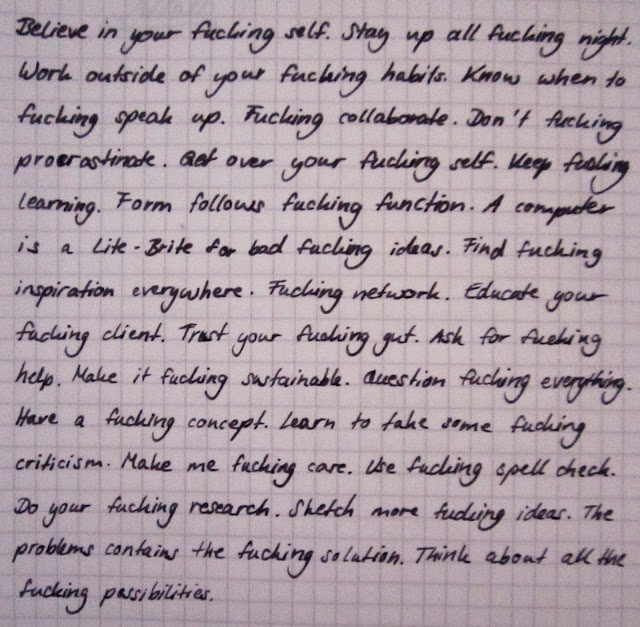 Believe in your fucking self. Stay up all fucking night.
Work outside of your fucking habits. Know when to
fucking speak up. Fucking collaborate. Don't fucking
procrastinate. Get over your fucking self. Keep fucking
learning. Form follows fucking function. A computer
is a Lite-Brite for bad fucking ideas. Find fucking
inspiration everywhere. Fucking network. Educate your
fucking client. Trust your fucking gut. Ask for fucking
help. Make it fucking sustainable. Question fucking everything.
Have a fucking concept. Learn to take some fucking
criticism. Make me fucking care. Use fucking spell check.
Do your fucking research. Sketch more fucking ideas. The
problems contains the fucking solution. Think about all the
fucking possibilities.